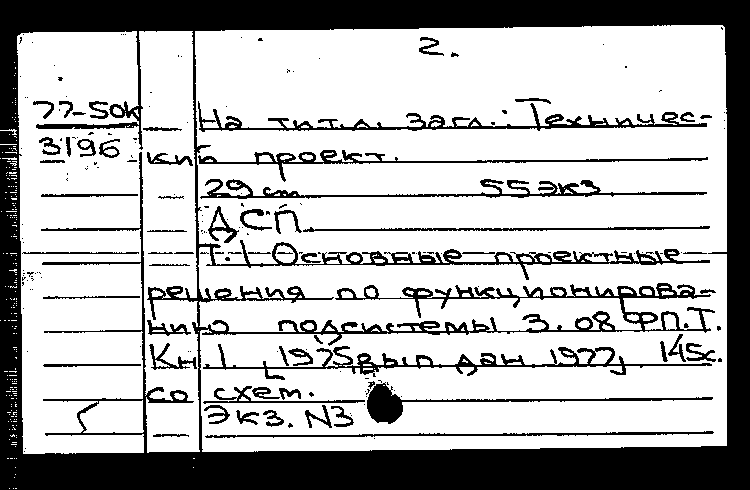 2.
77-50к
3196
На тит.л. загл.: Техничес-
кий проект.
29 см 55 экз.
ДСП.
Т.1. Основные проектные
решения по функционирова-
нию подсистемы 3.08 ФП.Т.
Кн.1. [1975, вып. дан. 1977] 145с.
со схем.
Экз. N3